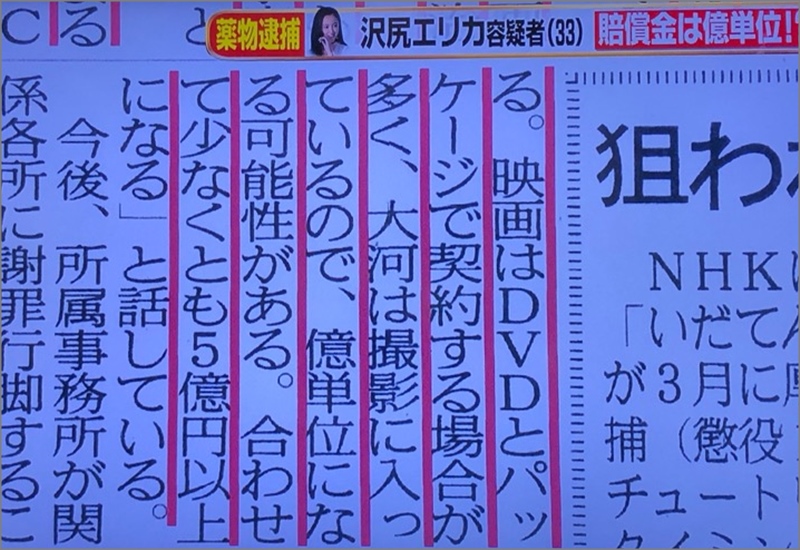 薬物逮捕
沢尻エリカ容疑者(33)
賠償金は億単位!
る。映画はDVDとパッ
ケージで契約する場合が
多く、大河は撮影に入っ
ているので、億単位にな
る可能性がある。合わせ
て少なくとも5億円以上
になる」と話している。
今後、所属事務所が関
係各所に謝罪行脚するこ
狙わ
NHK
「いだて
が3月に
捕(懲役
チュート
タイミ
る
C